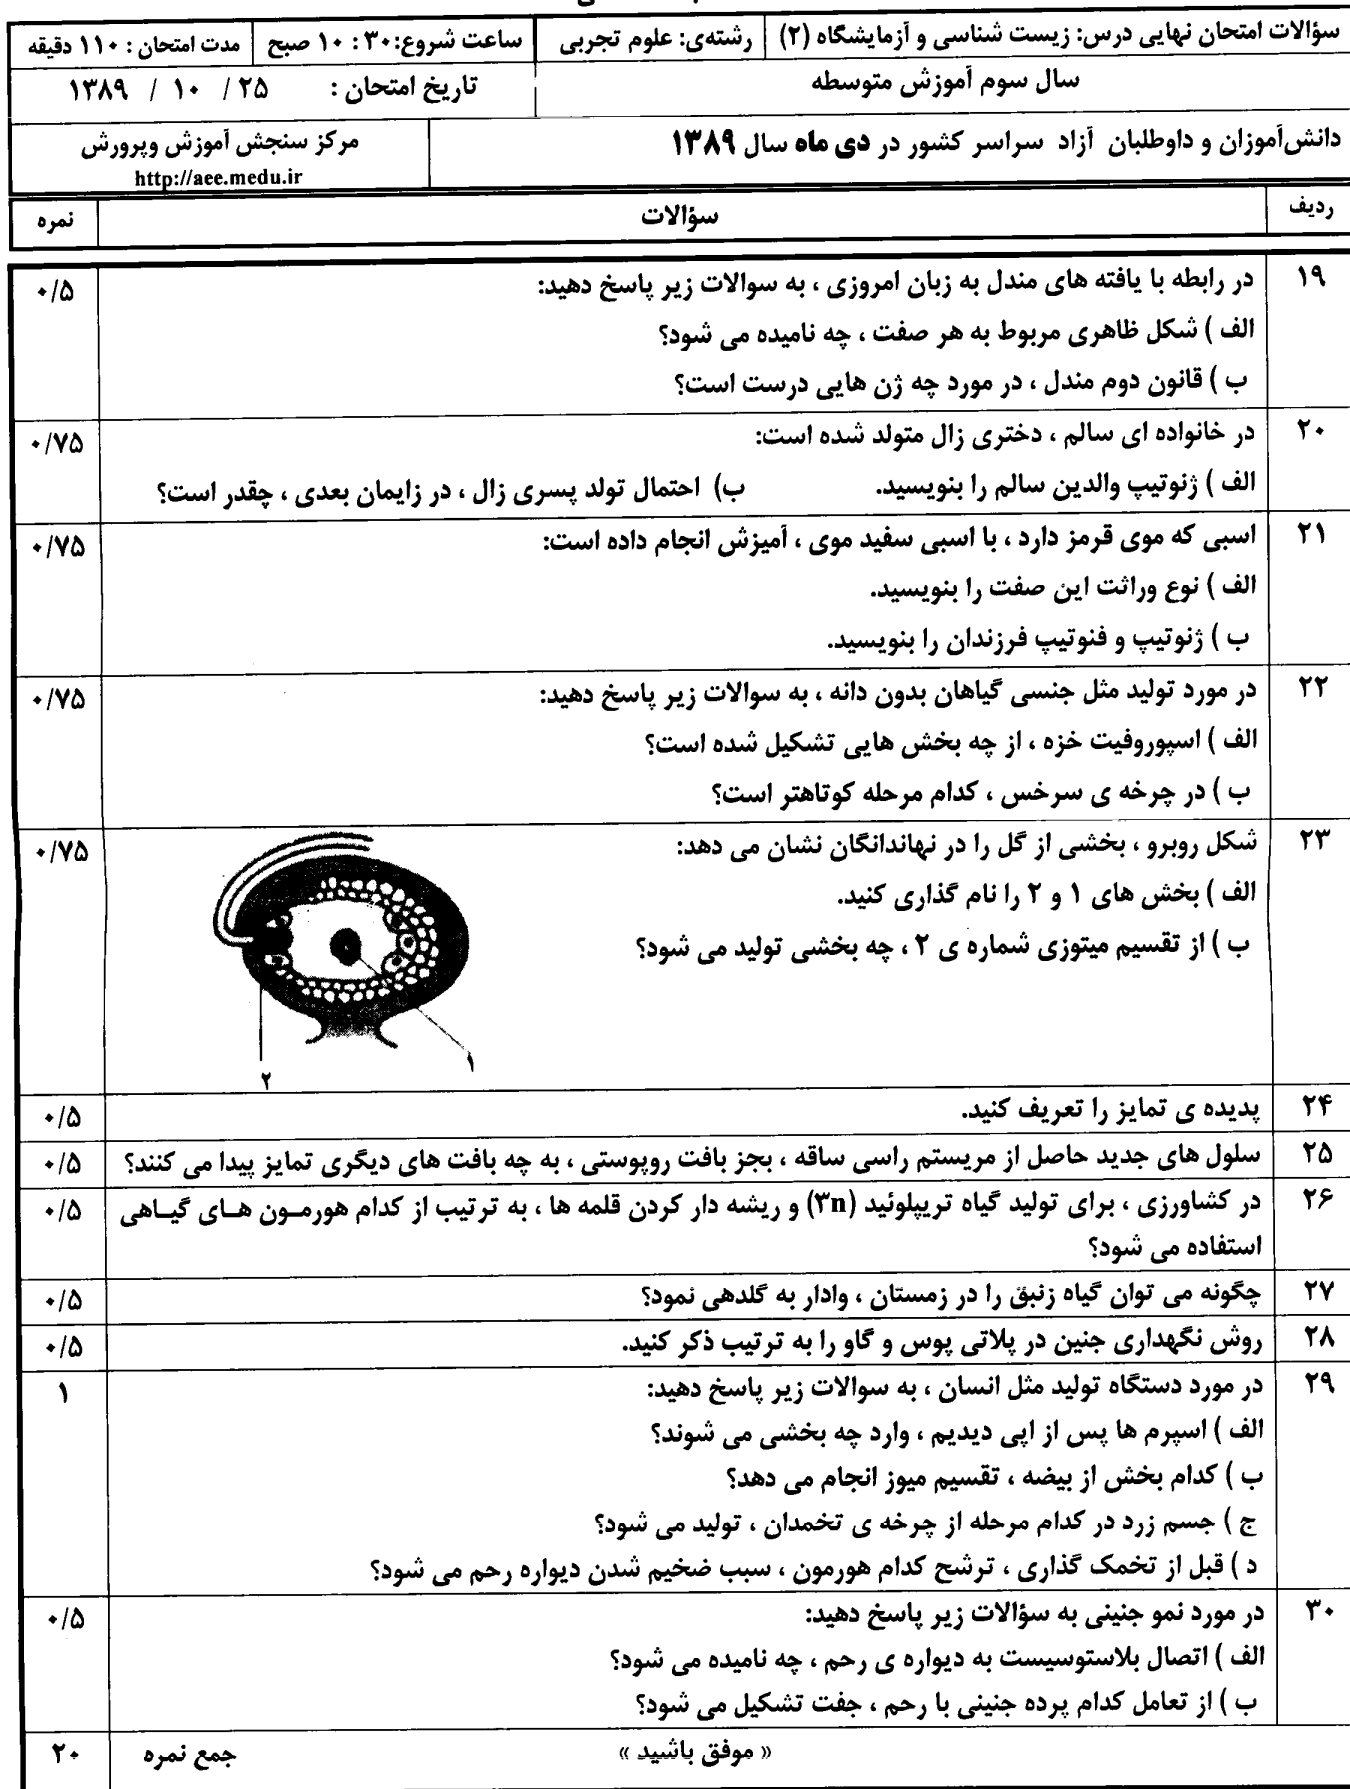 سؤالات امتحان نهایی درس: زیست شناسی و آزمایشگاه (۲) رشته‌ی: علوم تجربی ساعت شروع:۳۰ : ۱۰ صبح مدت امتحان : ۱۱۰ دقیقه
سال سوم آموزش متوسطه تاریخ امتحان : ۲۵ / ۱۰ / ۱۳۸۹
دانش‌آموزان و داوطلبان آزاد سراسر کشور در دی ماه سال ۱۳۸۹ مرکز سنجش آموزش وپرورش
http://aee.medu.ir
ردیف سؤالات نمره
۱۹ در رابطه با یافته های مندل به زبان امروزی ، به سوالات زیر پاسخ دهید: ۰/۵
الف ) شکل ظاهری مربوط به هر صفت ، چه نامیده می شود؟
ب ) قانون دوم مندل ، در مورد چه ژن هایی درست است؟
۲۰ در خانواده ای سالم ، دختری زال متولد شده است: ۰/۷۵
الف ) ژنوتیپ والدین سالم را بنویسید. ب) احتمال تولد پسری زال ، در زایمان بعدی ، چقدر است؟
۲۱ اسبی که موی قرمز دارد ، با اسبی سفید موی ، آمیزش انجام داده است: ۰/۷۵
الف ) نوع وراثت این صفت را بنویسید.
ب ) ژنوتیپ و فنوتیپ فرزندان را بنویسید.
۲۲ در مورد تولید مثل جنسی گیاهان بدون دانه ، به سوالات زیر پاسخ دهید: ۰/۷۵
الف ) اسپوروفیت خزه ، از چه بخش هایی تشکیل شده است؟
ب ) در چرخه ی سرخس ، کدام مرحله کوتاهتر است؟
۲۳ شکل روبرو ، بخشی از گل را در نهاندانگان نشان می دهد: ۰/۷۵
الف ) بخش های ۱ و ۲ را نام گذاری کنید.
ب ) از تقسیم میتوزی شماره ی ۲ ، چه بخشی تولید می شود؟
۱
۲
۲۴ پدیده ی تمایز را تعریف کنید. ۰/۵
۲۵ سلول های جدید حاصل از مریستم راسی ساقه ، بجز بافت روپوستی ، به چه بافت های دیگری تمایز پیدا می کنند؟ ۰/۵
۲۶ در کشاورزی ، برای تولید گیاه تریپلوئید (۳n) و ریشه دار کردن قلمه ها ، به ترتیب از کدام هورمـون هـای گیـاهی ۰/۵
استفاده می شود؟
۲۷ چگونه می توان گیاه زنبق را در زمستان ، وادار به گلدهی نمود؟ ۰/۵
۲۸ روش نگهداری جنین در پلاتی پوس و گاو را به ترتیب ذکر کنید. ۰/۵
۲۹ در مورد دستگاه تولید مثل انسان ، به سوالات زیر پاسخ دهید: ۱
الف ) اسپرم ها پس از اپی دیدیم ، وارد چه بخشی می شوند؟
ب ) کدام بخش از بیضه ، تقسیم میوز انجام می دهد؟
ج ) جسم زرد در کدام مرحله از چرخه ی تخمدان ، تولید می شود؟
د ) قبل از تخمک گذاری ، ترشح کدام هورمون ، سبب ضخیم شدن دیواره رحم می شود؟
۳۰ در مورد نمو جنینی به سؤالات زیر پاسخ دهید: ۰/۵
الف ) اتصال بلاستوسیست به دیواره ی رحم ، چه نامیده می شود؟
ب ) از تعامل کدام پرده جنینی با رحم ، جفت تشکیل می شود؟
« موفق باشید » جمع نمره ۲۰